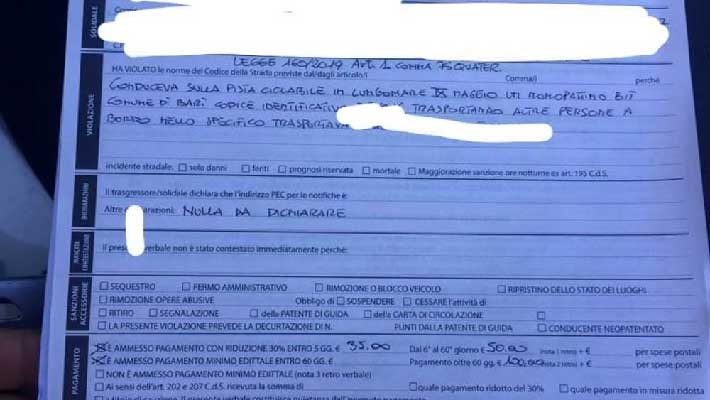 SOLIDALE
C.F.
LEGGE 160/2019 ART. 1 COMMA 75 QUATER.
HA VIOLATO le norme del Codice della Strada previste dal/dagli articolo/i Comma/i perché
VIOLAZIONE
CONDUCEVA SULLA PISTA CICLABILE IN LUNGOMARE IX MAGGIO UN MONOPATTINO BIT
COMUNE DI BARI CODICE IDENTIFICATIVO TRASPORTANDO ALTRE PERSONE A
BORDO NELLO SPECIFICO TRASPORTAVA
incidente stradale: ☐ solo danni ☐ feriti ☐ prognosi riservata ☐ mortale ☐ Maggiorazione sanzione ore notturne ex art. 195 C.d.S.
DICHIARAZIONI
Il trasgressore/solidale dichiara che l'indirizzo PEC per le notifiche è:
Altre dichiarazioni: NULLA DA DICHIARARE
MANCATA CONTESTAZIONE
Il presente verbale non è stato contestato immediatamente perché:
SANZIONI ACCESSORIE
☐ SEQUESTRO ☐ FERMO AMMINISTRATIVO ☐ RIMOZIONE O BLOCCO VEICOLO ☐ RIPRISTINO DELLO STATO DEI LUOGHI
☐ RIMOZIONE OPERE ABUSIVE Obbligo di ☐ SOSPENDERE ☐ CESSARE l'attività di
☐ RITIRO ☐ SEGNALAZIONE ☐ della PATENTE DI GUIDA ☐ della CARTA DI CIRCOLAZIONE ☐
☐ LA PRESENTE VIOLAZIONE PREVEDE LA DECURTAZIONE DI N. PUNTI DALLA PATENTE DI GUIDA ☐ CONDUCENTE NEOPATENTATO
PAGAMENTO
☒ È AMMESSO PAGAMENTO CON RIDUZIONE 30% ENTRO 5 GG. € 35.00 Dal 6° al 60° giorno € 50.00 (nota 1 retro) + € per spese postali
☒ È AMMESSO PAGAMENTO MINIMO EDITTALE ENTRO 60 GG. € Pagamento oltre 60 gg. € 100,00 (nota 2 retro) + € per spese postali
☐ NON È AMMESSO PAGAMENTO MINIMO EDITTALE (nota 3 retro verbale)
☐ Ai sensi dell'art. 202 e 207 C.d.S. ricevuta la somma di ☐ quale pagamento ridotto del 30% ☐ quale pagamento in misura ridotta